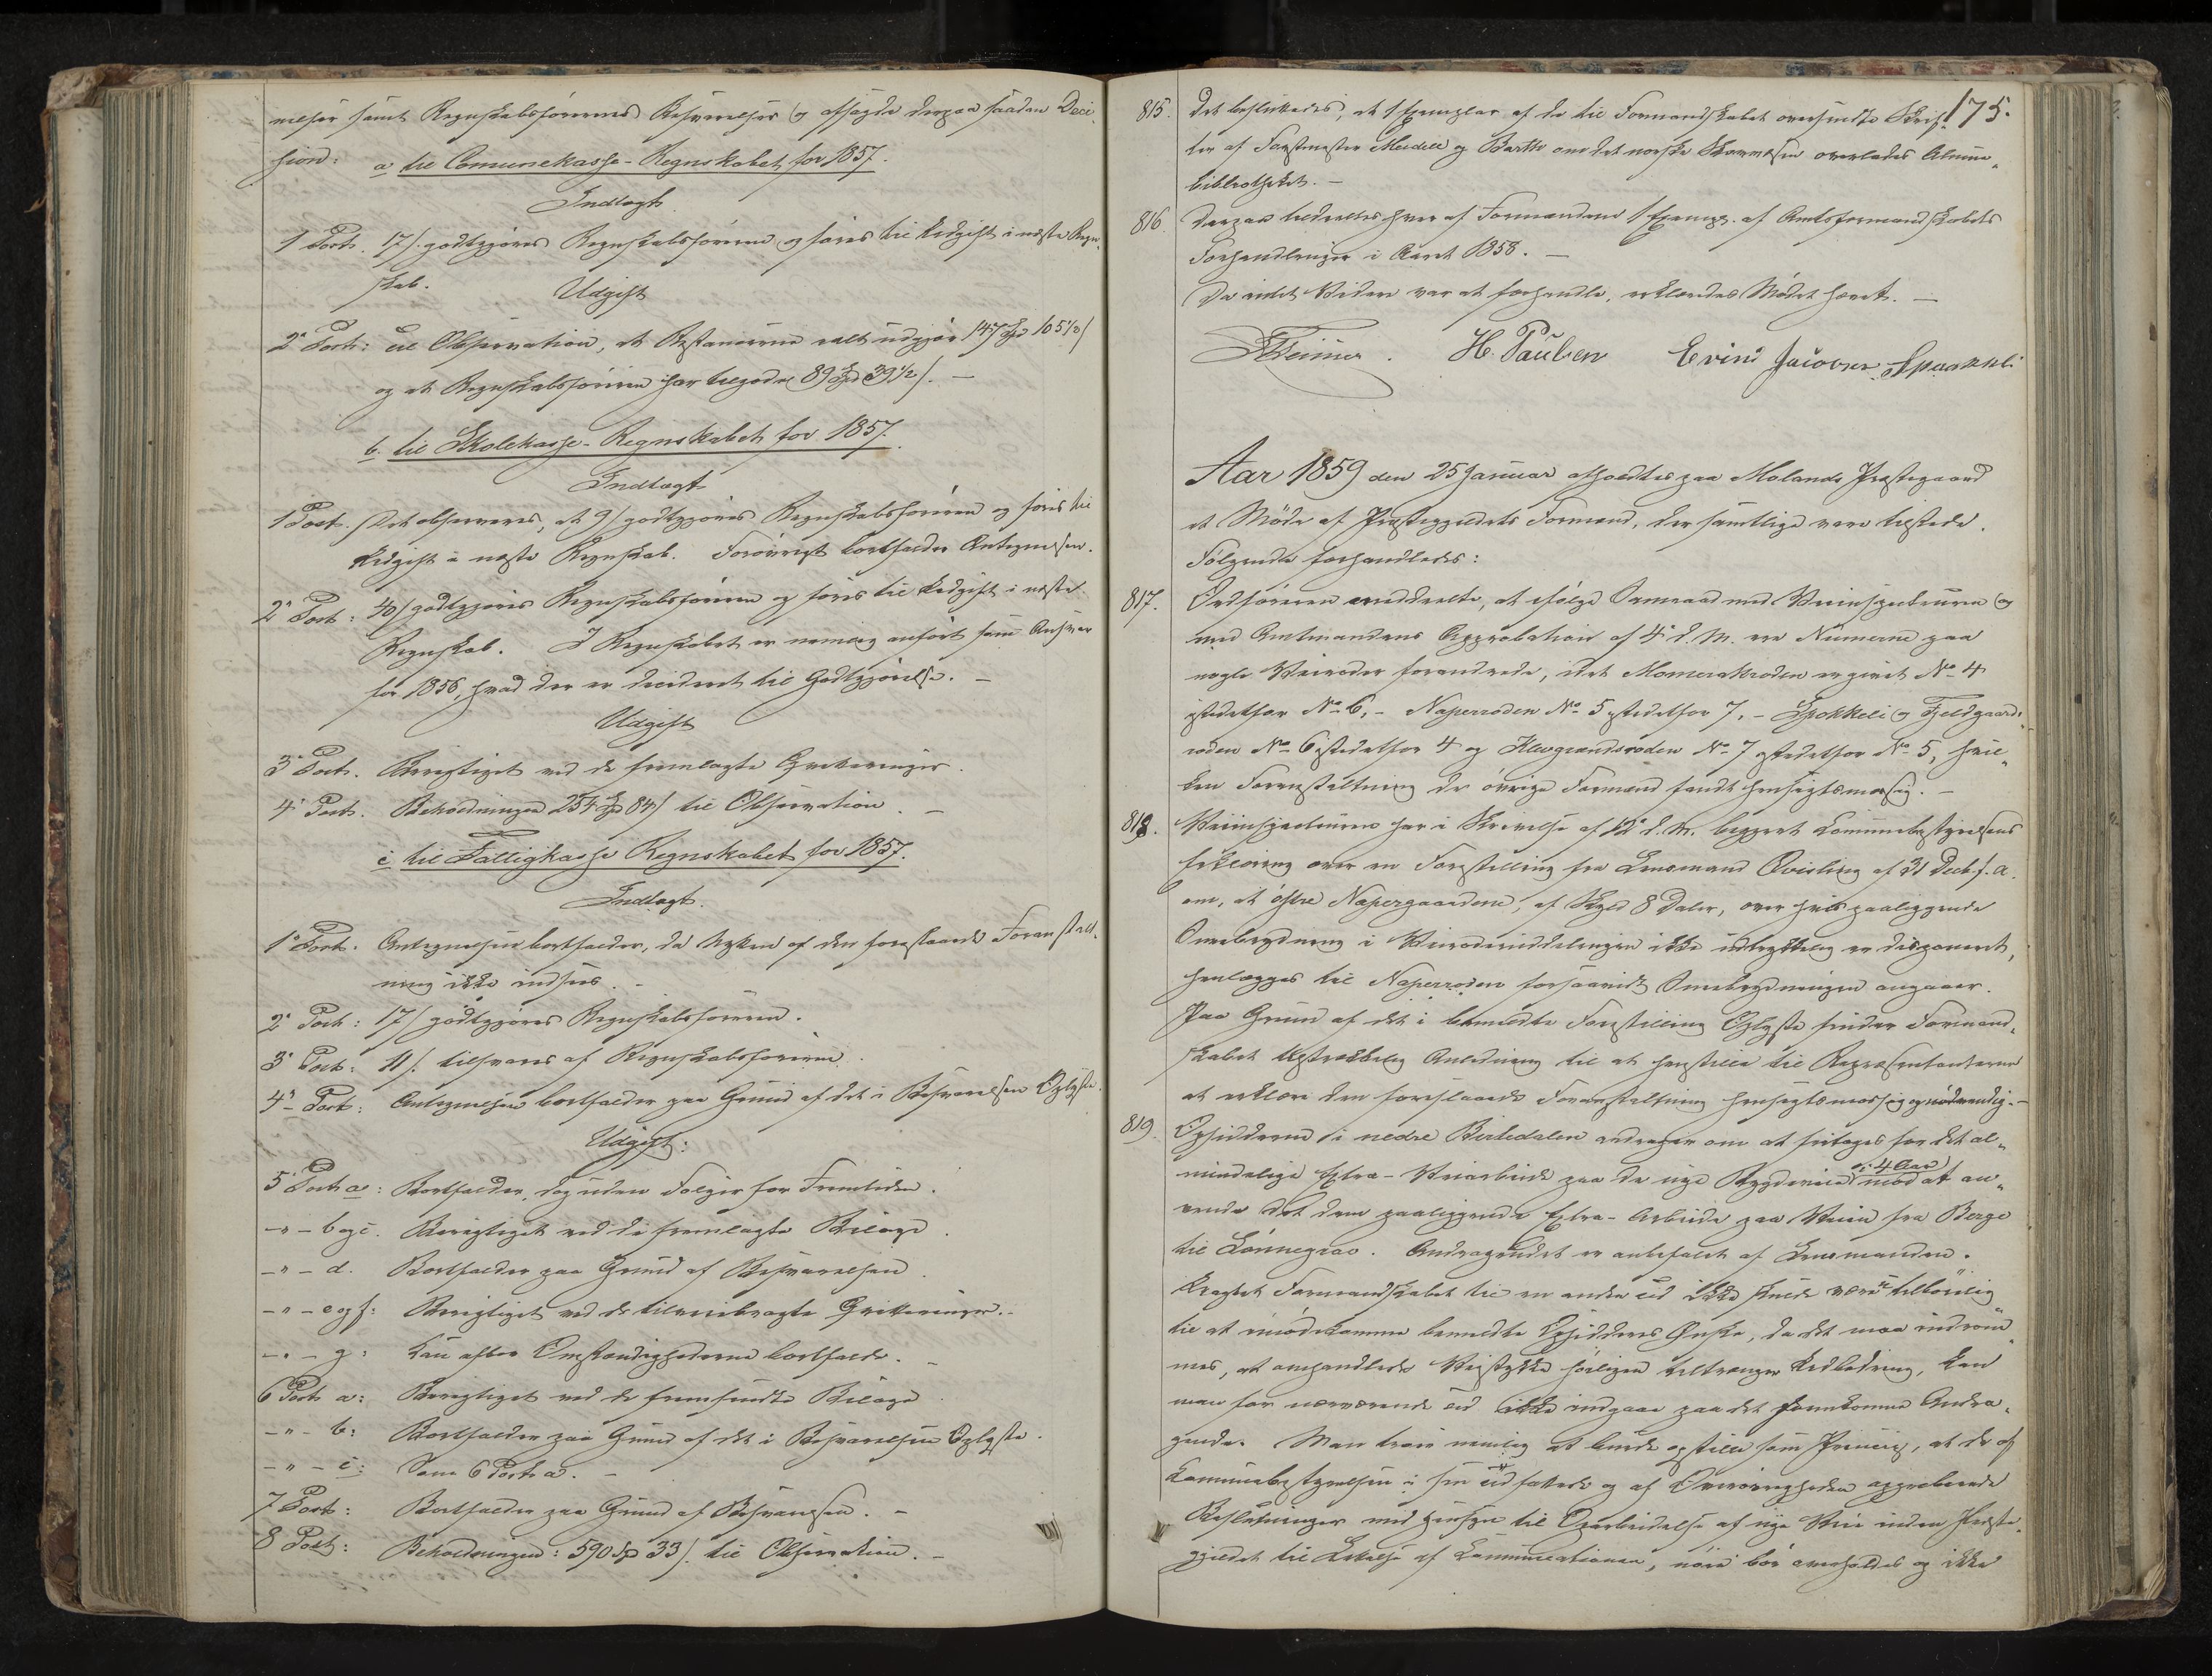 nelser samt Regnskabsførerens Besvarelser og afsagde derpaa saadan Deci-
sion: a til Comunekasse-Regnskabet for 1857.
Indtægt
1 Post. 17 s. godtgjøres Regnskabsføreren og føres til Udgift i næste Regn-
skab.
Udgift
2 Post: til Observation, at Restancerne ialt udgjør 147 Spd 105½ s
og at Regnskabsføreren har tilgode 89 Spd 39½ s. —
b. til Skolekasse-Regnskabet for 1857.
Indtægt
1 Post. Det observeres, at 9 s godtgjøres Regnskabsføreren og føres til
Udgift i næste Regnskab. Forøvrigt bortfalder Antegnelsen.
2 Post: 40 s godtgjøres Regnskabsføreren og føres til Udgift i næste
Regnskab. I Regnskabet er nemlig anført som Ansvar
for 1856, hvad der er decideret til Godtgjørelse. —
Udgift
3 Post. Berigtiget ved de fremlagte Qvitteringer.
4 Post. Beholdningen 254 Spd 84 s til Observation. —
c til Fattigkasse Regnskabet for 1857.
Indtægt.
1 Post. Antegnelsen bortfalder, da Nytten af den foreslaaede Foranstalt-
ning ikke indsees. —
2 Post: 17 s godtgjøres Regnskabsføreren.
3 Post: 11 s. tilsvares af Regnskabsføreren.
4 Post: Antegnelsen bortfalder paa Grund af det i Besvarelsen Oplyste.
Udgift:
5 Post a: Bortfalder, dog uden Følger for Fremtiden.
— " — b og c. Berigtiget ved de fremlagte Bilage.
— " — d. Bortfalder paa Grund af Besvarelsen.
— " — e og f: Berigtiget ved de tilveiebragte Qvitteringer. —
— " — g: Kan efter Omstændighederne bortfalde. —
6 Post a: Berigtiget ved de fremsendte Bilage
— " — b: Bortfalder paa Grund af det i Besvarelsen Oplyste.
— " — c: Som 6 Post a. —
7 Post: Bortfalder paa Grund af Besvarelsen. —
8 Post: Beholdningen: 590 Spd 33 s. til Observation. —
175.
815. Det besluttedes, at 1 Exemplar af de til Formandskabet oversendte Skrif-
ter af Forstmester Meidell og Barth om det norske Skovvæsen overlades Almue-
bibliotheket. —
816. Derpaa uddeeltes hver af Formændene 1 Exempl. af Amtsformandskabets
Forhandlinger i Aaret 1858. —
Da intet Videre var at forhandle, erklæredes Mødet hævet. —
H. Paulsen Evind Jacobsen Spaakkeli
Aar 1859 den 25 Januar afholdtes paa Molands Præstegaard
et Møde af Præstegjeldets Formænd, der samtlige vare tilstede.
Følgende forhandledes:
817. Ordføreren meddeelte, at ifølge Samraad med Veiinspecteuren og
med Amtmandens Approbation af 4 d. M. ere Numerne paa
nogle Veiroder forandrede, idet Momerakroden er givet No 4
istedetfor No 6, — Naperroden No 5 istedetfor 7, — Spokkeli og Fjeldgaards-
roden No 6 istedetfor 4 og Klevgrændsroden No 7 istedetfor No 5, hvil-
ken Foranstaltning de øvrige Formænd fandt hensigtsmæssig. —
818. Veiinspecteuren har i Skrivelse af 12 d. M. begjært Communebestyrelsens
Erklæring over en Forestilling fra Lensmand Qvisling af 31 Decbr f. A.
om, at østre Napergaardene, af Skyld 8 Daler, over hvis paaliggende
Omebrydning i Veirodeinddelingen ikke udtrykkelig er disponeret,
henlægges til Naperroden forsaavidt Omebrydningen angaaer.
Paa Grund af det i bemeldte Forestilling Oplyste finder Formand-
skabet tilstrækkelig Anledning til at henstille til Repræsentanterne
at erklære den foreslaaede Foranstaltning hensigtsmæssig og nødvendig. —
819. Opsidderne i nedre Birtedalen andrager om at fritages for det al-
mindelige Extra-Veiarbeide paa de nye Bygdeveie i 4 Aar mod at an-
vende det dem paaliggende Extra-Arbeide paa Veien fra Berge
til Lønnegrav. Andragendet er anbefalet af Lensmanden.
Uagtet Formandskabet til en anden Tid ikke skulde være utilbøielig
til at imødekomme bemeldte Opsidderes Ønske, da det maa indrøm-
mes, at omhandlede Veistykke høiligen tiltrænger Udbedring, kan
man for nærværende Tid ikke indgaae paa det fremkomne Andra-
gende. Man troer nemlig at burde opstille som Princip, at de af
Communebestyrelsen i sin Tid fattede og af Overøvrigheden approberede
Beslutninger med Hensyn til Oparbeidelse af nye Veie inden Præste-
gjeldet til Lettelse af Communicationen, nøie bør overholdes og ikke